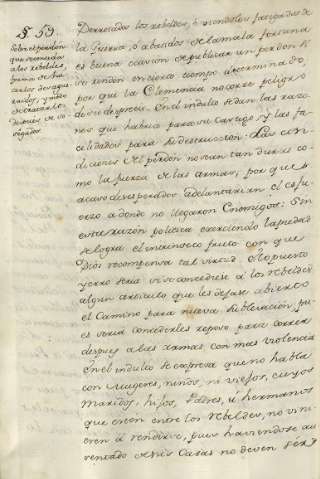 §. 59.
Sobre el perdon
que se concede
a los rebeldes,
forma de ha
cerlos desagra
después de so
segados.
Derrotados los rebeldes, ó viendolos fatigados de
la Guerra, ó abatidos de la mala fortuna
es buena ocasion de publicar un perdon
en cierto tiempo determinado
por que la Clemencia no corre peligro
de desprecio. En el indulto se dan las razo
nes que habria para su castigo, y las fa
cilidades para su destruccion: Las con
diciones del perdón no sean tan duras co
mo la fuerza de las armas, por que
acaso desesperados adelantarian el esfu
erzo a donde no llegaron Enemigos: Con
esta razón politica exerciendo la piedad
se logra el fruto con que
Dios recompensa tal virtud. Mo puerto
yerro seria si se concediese á los rebeldes
algun articulo que les dejase abierto
el Camino para nueva sublevacion pu
es seria concederles reposo para correr
despues a las armas, con mas violencia
En el indulto se expresa que no habla
con Mugeres, niños, ni viejos, cuyos
Maridos, hijos, Padres, ó hermanos
que estén entre los Rebeldes, no vini
eren á rendirse, pues haviendose au
sentado de sus Casas no deven ser